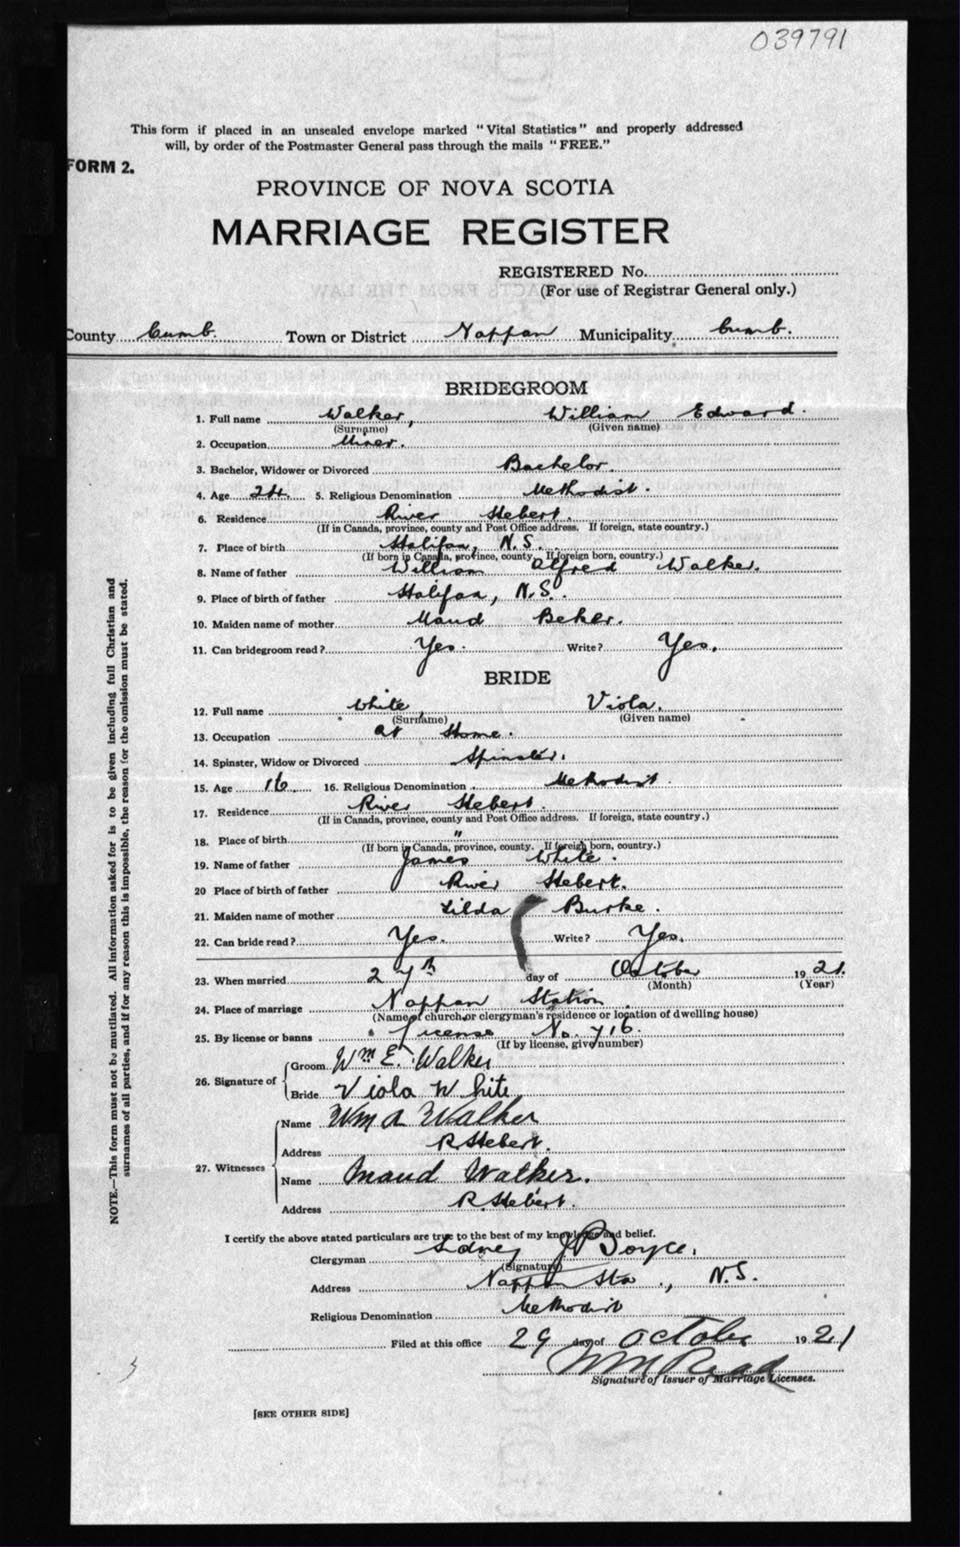 039791
This form if placed in an unsealed envelope marked "Vital Statistics" and properly addressed
will, by order of the Postmaster General pass through the mails "FREE."
FORM 2.
PROVINCE OF NOVA SCOTIA
MARRIAGE REGISTER
REGISTERED No.
(For use of Registrar General only.)
County Cumb. Town or District Nappan Municipality Cumb.
BRIDEGROOM
1. Full name Walker, William Edward.
(Surname) (Given name)
2. Occupation Miner.
3. Bachelor, Widower or Divorced Bachelor.
4. Age 24. 5. Religious Denomination Methodist.
6. Residence River Hebert.
(If in Canada, province, county and Post Office address. If foreign, state country.)
7. Place of birth Halifax, N.S.
(If born in Canada, province, county. If foreign born, country.)
8. Name of father William Alfred Walker.
9. Place of birth of father Halifax, N.S.
10. Maiden name of mother Maud Beker.
11. Can bridegroom read? Yes. Write? Yes.
BRIDE
12. Full name White Viola.
(Surname) (Given name)
13. Occupation at Home.
14. Spinster, Widow or Divorced Spinster.
15. Age 16. 16. Religious Denomination Methodist.
17. Residence River Hebert.
(If in Canada, province, county and Post Office address. If foreign, state country.)
18. Place of birth "
(If born in Canada, province, county. If foreign born, country.)
19. Name of father James White.
20 Place of birth of father River Hebert.
21. Maiden name of mother Lilda Burke.
22. Can bride read? Yes. Write? Yes.
23. When married 27th day of October 1921.
(Month) (Year)
24. Place of marriage Nappan Station
(Name of church or clergyman's residence or location of dwelling house)
25. By license or banns License No. 716.
(If by license, give number)
26. Signature of Groom. Wm E. Walker
Bride Viola White
27. Witnesses Name Wm A Walker
Address R. Hebert.
Name Maud Walker.
Address R. Hebert.
I certify the above stated particulars are true to the best of my knowledge and belief.
Clergyman Sidney J Boyce.
(Signature)
Address Nappan Sta., N.S.
Religious Denomination Methodist
Filed at this office 29 day of October 1921
Signature of Issuer of Marriage Licenses.
[SEE OTHER SIDE]
NOTE.—This form must not be mutilated. All information asked for is to be given including full Christian and
surnames of all parties, and if for any reason this is impossible, the reason for the omission must be stated.